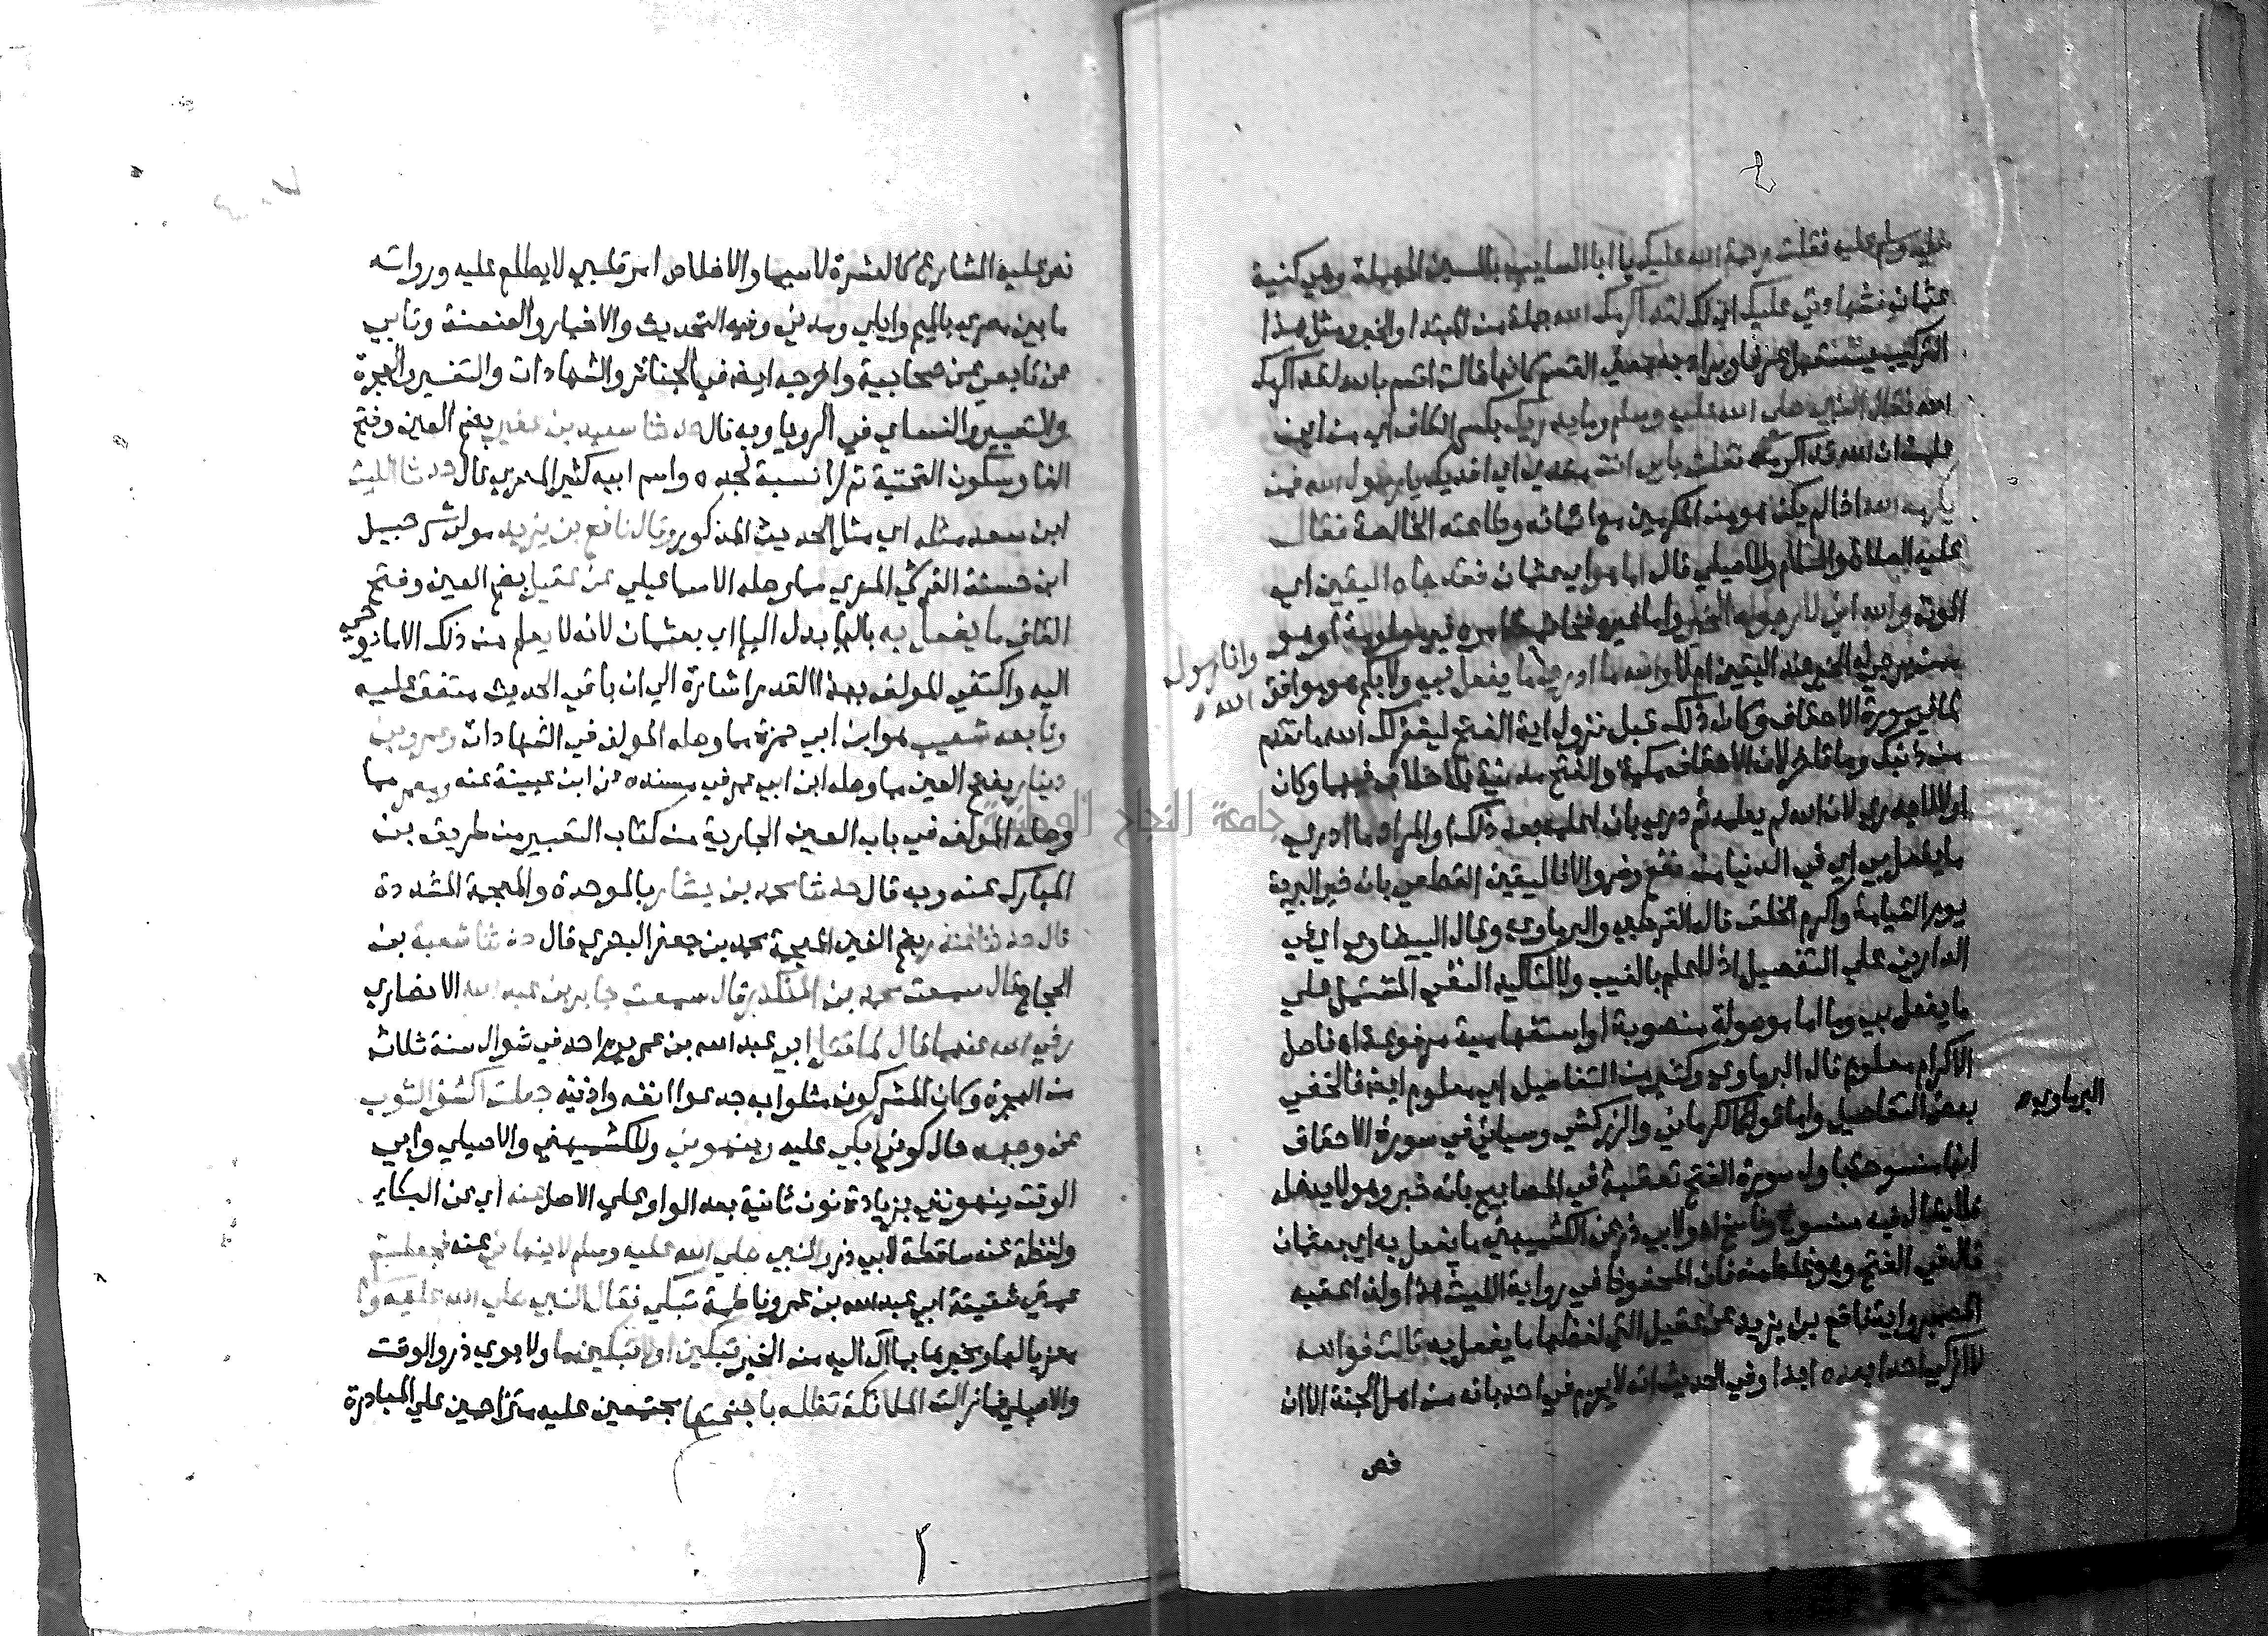 عليه وسلم عليه فقلت رحمة الله عليك يا ابا السايب بالسين المهملة وهي كنية
عثمان فشهادتي عليك اي لك لقد اكرمك الله جملة من المبتدا والخبر ومثل هذا
التركيب يستعمل عرفا ويراد به معني القسم كانها قالت اقسم بالله لقد اكرمك
الله فقال النبي صلي الله عليه وسلم وما يدريك بكسر الكاف اي من اين
علمت ان الله قد اكرمه فقلت بابي انت مفدي اي افديك يا رسول الله فمن
يكرمه الله اذا لم يكن هو من المكرمين مع ايمانه وطاعته الخالصة فقال
عليه الصلاة والسلام وللاصيلي قال اما هو اي عثمان فقد جاه اليقين اي
الموت والله اني لارجو له الخير واما غيره فخاتمة امره غير معلومة اهو
ممن يرجي له الخير عند اليقين ام لا والله ما ادري وانا رسول الله ما يفعل بي ولا بكم هو موافق
لما في سورة الاحقاف وكان ذلك قبل نزول اية الفتح ليغفر لك الله ما تقدم
من ذنبك وما تاخر لان الاحقاف مكية والفتح مدنية بلا خلاف فيهما وكان
اولا لا يدري لان الله لم يعلمه ثم دري بان اعلمه بعد ذلك او المراد ما ادري
ما يفعل بي اي في الدنيا من نفع وضر والا فاليقين القطعي بانه خير البرية
يوم القيامة واكرم الخلق قاله القرطبي والبرماوي وقال البيضاوي اي في
الدارين علي التفصيل اذ لا علم بالغيب ولا لتاكيد النفي المشتمل علي
ما يفعل بي وما اما موصولة منصوبة او استفهامية مرفوعة اه فاصل
الاكرام معلوم قال البرماوي وكثير من التفاصيل اي معلوم ايضا فالخفي
البرماوي
بعض التفاصيل واما قول الكرماني والزركشي وسياتي في سورة الاحقاف
انها منسوخة باول سورة الفتح تعقبه في المصابيح بانه خبر وهو لا يدخله
فلا يقال فيه منسوخ وناسخ اه ولابي ذر عن الكشميهني ما يفعل به اي بعثمان
قال في الفتح وهو غلط منه فان المحفوظ في رواية الليث هذا ولذا عقبه
المصنف برواية نافع بن يزيد عن عقيل التي لفظها ما يفعل به قالت فوالله
لا ازكي احدا بعده ابدا وفي الحديث انه لا يجزم في احد بانه من اهل الجنة الا ان
نص
نص عليه الشارع كالعشرة لا سيما والاخلاص امر قلبي لا يطلع عليه ورواته
ما بين مصري بالميم وايلي ومدني وفيه التحديث والاخبار والعنعنة وتابعي
عن تابعي عن صحابية واخرجه ايضا في الجنائز والشهادات والتفسير والهجرة
والتعبير والنسائي في الرويا وبه قال حدثنا سعيد بن عفير بضم العين وفتح
الفا وسكون التحتية ثم را نسبة لجده واسم ابيه كثير المصري قال حدثنا الليث
ابن سعد مثله اي مثل الحديث المذكور وقال نافع بن يزيد مولي شرحبيل
ابن حسنة القرشي المصري مما وصله الاسماعيلي عن عقيل بضم العين وفتح
القاف ما يفعل به بالها بدل اليا اي بعثمان لانه لا يعلم من ذلك الا ما يوحي
اليه واكتفي المولف بهذا القدر اشارة الي ان باقي الحديث متفق عليه
وتابعه شعيب هو ابن ابي حمزة مما وصله المولف في الشهادات وعمرو بن
دينار بفتح العين مما وصله ابن ابي عمر في مسنده عن ابن عيينة عنه ومعمر مما
وصله المولف في باب العين الجارية من كتاب التعبير من طريق بن
المبارك عنه وبه قال حدثنا محمد بن بشار بالموحدة والمعجمة المشددة
قال حدثنا غندر بضم الغين المعجمة محمد بن جعفر البصري قال حدثنا شعبة بن
الحجاج قال سمعت محمد بن المنكدر قال سمعت جابر بن عبد الله الانصاري
رضي الله عنهما قال لما قتل ابي عبد الله بن عمرو يوم احد في شوال سنة ثلاث
من الهجرة وكان المشركون مثلوا به جدعوا انفه واذنيه جعلت اكشف الثوب
عن وجهه حال كوني ابكي عليه وينهوني وللكشميهني والاصيلي وابي
الوقت ينهونني بزيادة نون ثانية بعد الواو علي الاصل عنه اي عن البكاء
ولفظة عنه ساقطة لابي ذر والنبي صلي الله عليه وسلم لا ينهاني عنه فجعلت
عمتي شقيقة ابي عبد الله بن عمرو فاطمة تبكي فقال النبي صلي الله عليه وسلم
معزيا لها ومخبرا بما آل اليه من الخير تبكين او لا تبكين ما ولابوي ذر والوقت
والاصيلي فما زالت الملائكة تظله باجنحتها مجتمعين عليه متزاحمين علي المبادرة
جامعة النجاح الوطنية